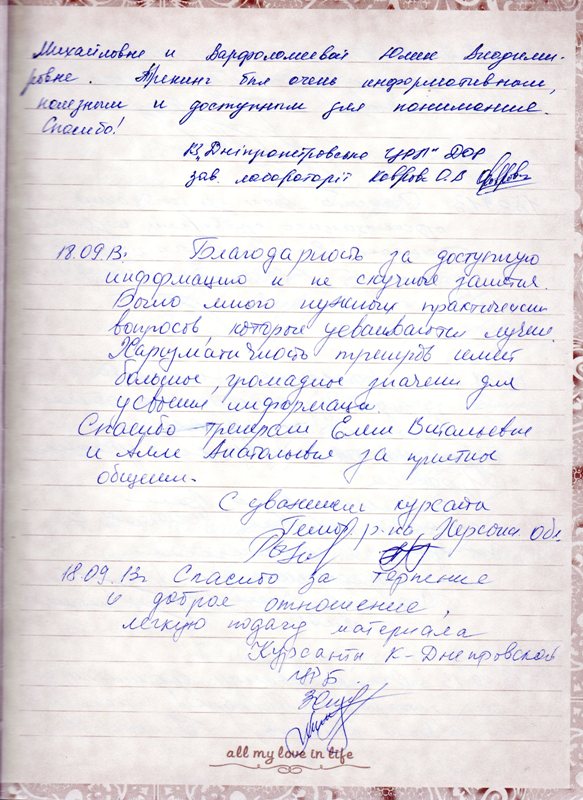 Михайловне и Варфоломеевой Юлие Владими-
ровне. Тренинг был очень информативным,
полезным и доступным для понимание.
Спасибо!
КЗ „Дніпропетровська ЦРЛ" ДОР
зав. лабораторії Коврова О.В
18.09.13г. Благодарность за доступную
информацию и не скучные занятия.
Было много нужных практически
вопросов которые усваиваются лучше.
Харизматичность тренеров имеет
большое, громадное значени для
усвоения информаци.
Спасибо тренерам Елене Витальевне
и Алле Анатольевне за приятное
общение.
С уважением курсанты
р-на, Херсонск обл.
18.09.13г Спасибо за терпение
и доброе отношение,
легкую подачу материала
Курсанты К-Днепровской
ЦРБ.
all my love in life